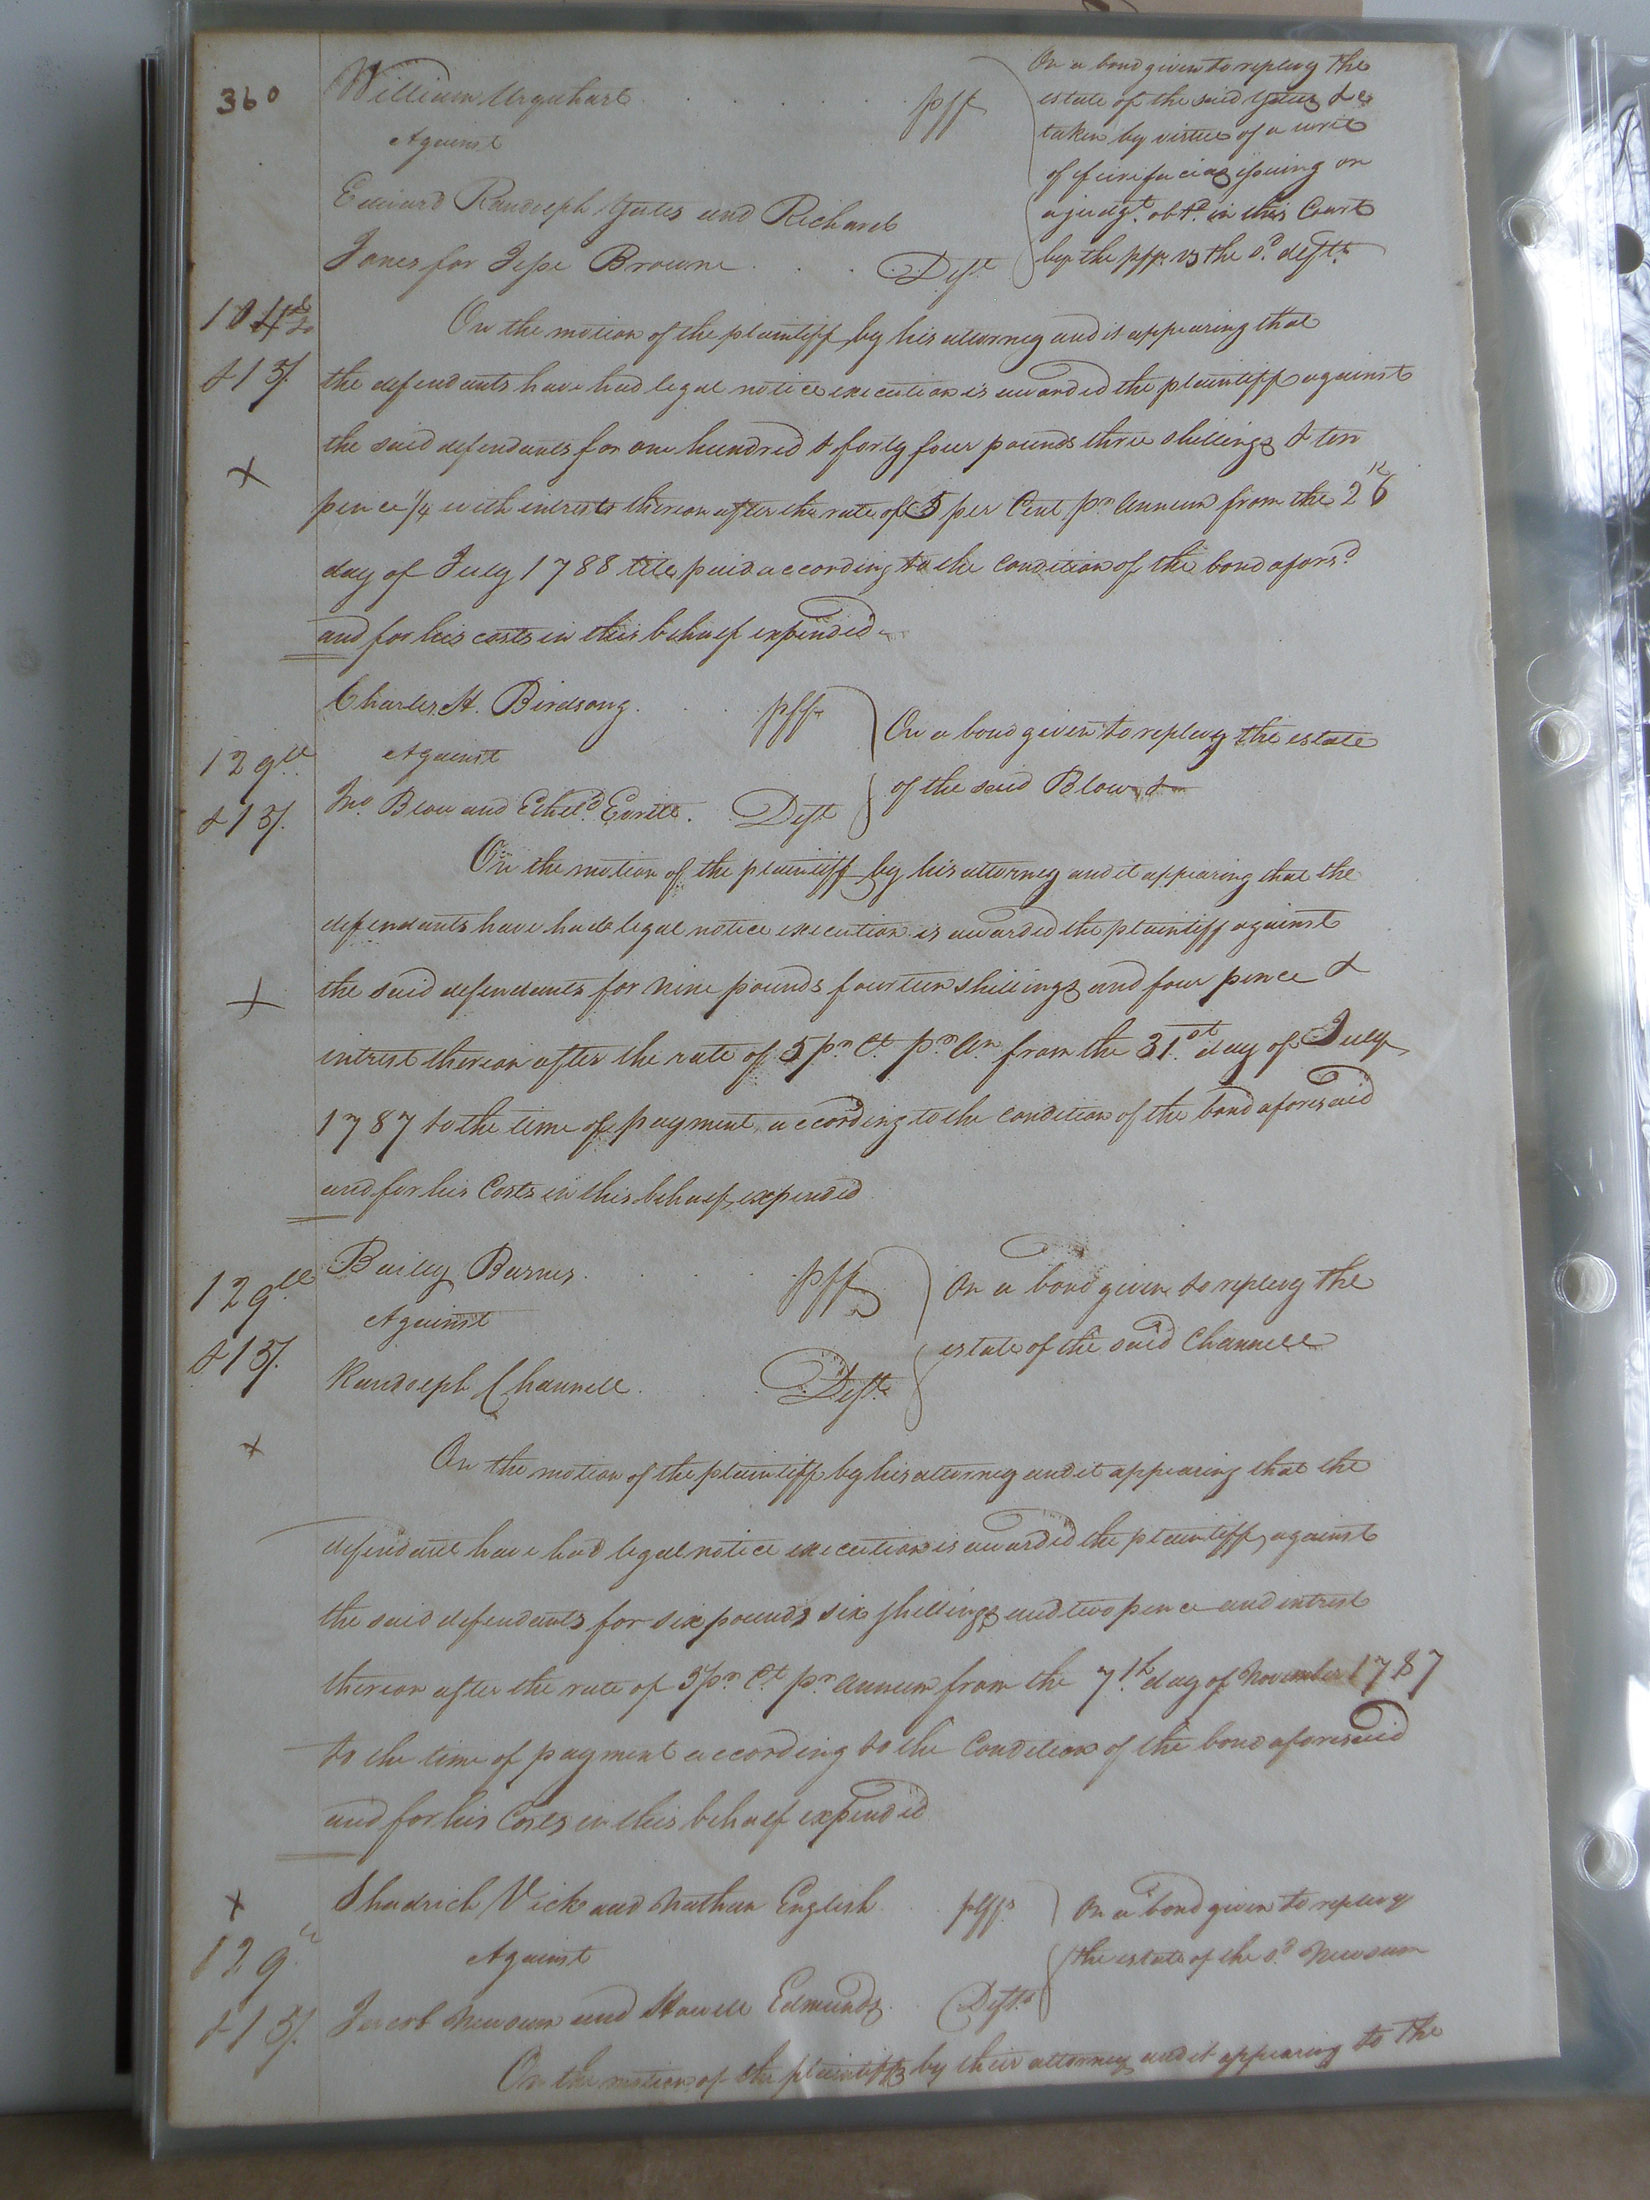 360
William Urquhart . . . . . pff
Against
Edward Randolph Yates and Richard
Jones for Jesse Browne . . . Deft
On a bond given to replevy the
estate of the said Yates &c
taken by virtue of a writ
of fierifacias issuing on
a judgt. obtd. in this Court
by the pff. vs the sd. defts.
& 15/.
On the motion of the plaintiff by his attorney and it appearing that
the defendants have had legal notice execution is awarded the plaintiff against
the said defendants for one hundred & forty four pounds three shillings & ten
pence 1/4 with intrests thereon after the rate of 5 per Cent pr. Annum from the 26th
day of July 1788 till paid according to the condition of the bond afors.d
and for his costs in this behalf expended
Charles H. Birdsong . . . pff
129ll
Against
& 15/.
Jno. Blow and Ethel.d Evritt. Deft
On a bond given to replevy the estate
of the said Blow &
On the motion of the plaintiff by his attorney and it appearing that the
defendants have had legal notice execution is awarded the plaintiff against
the said defendants for nine pounds fourteen shillings and four pence &
intrest thereon after the rate of 5 pr. Ct. pr. An. from the 31st. day of July
1787 to the time of payment according to the condition of the bond aforesaid
and for his Costs in this behalf expended
Bailey Barnes . . . . pff
129ll
Against
& 15/.
Randolph Channell . . . Deft.
On a bond given to replevy the
estate of the said Channell
On the motion of the plaintiff by his attorney and it appearing that the
defendant have had legal notice execution is awarded the plaintiff against
the said defendants for six pounds six shillings and two pence and intrest
thereon after the rate of 5 pr. Ct. pr. Annum from the 7th. day of November 1787
to the time of payment according to the Condition of the bond aforesaid
and for his Costs in this behalf expended
Shadrich Vick and Nathan English . . plffs
129ll
Against
& 15/.
Jacob Newsum and Howell Edmunds . . Defts.
On a bond given to replevy
the estate of the sd. Newsum
On the motion of the plaintiffs by their attorney and it appearing to the